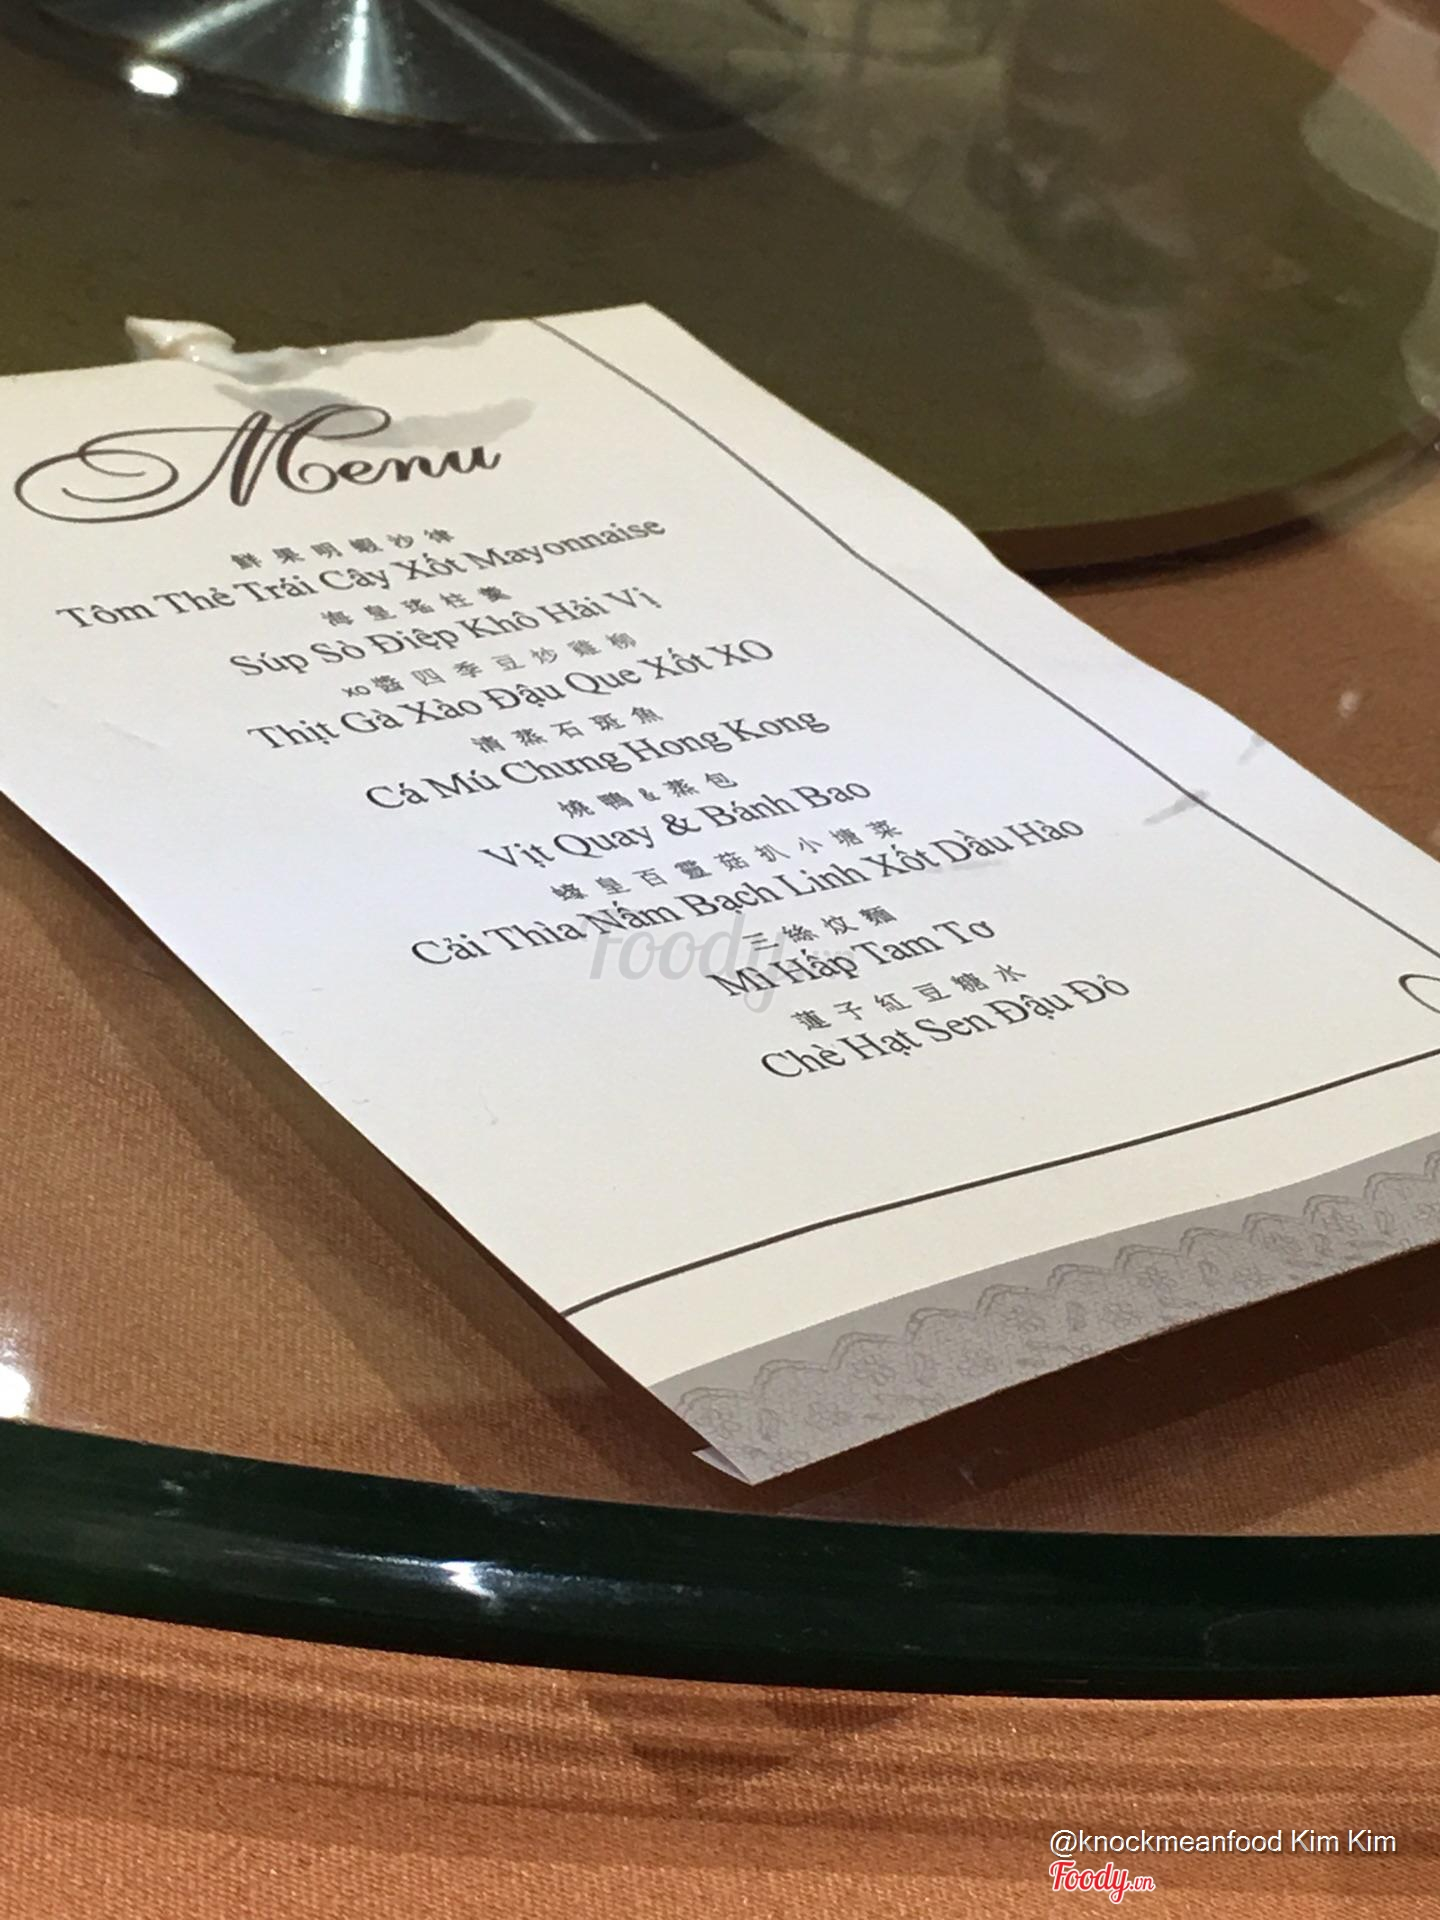 Menu
鮮果明蝦沙律
Tôm Thẻ Trái Cây Xốt Mayonnaise
海皇瑤柱羹
Súp Sò Điệp Khô Hải Vị
XO醬四季豆炒雞柳
Thịt Gà Xào Đậu Que Xốt XO
清蒸石斑魚
Cá Mú Chưng Hong Kong
燒鴨&蒸包
Vịt Quay & Bánh Bao
蜂皇百靈菇扒小塘菜
Cải Thìa Nấm Bạch Linh Xốt Dầu Hào
三絲炆麵
Mì Hấp Tam Tơ
蓮子紅豆糖水
Chè Hạt Sen Đậu Đỏ
Foody
@knockmeanfood Kim Kim
Foody.vn